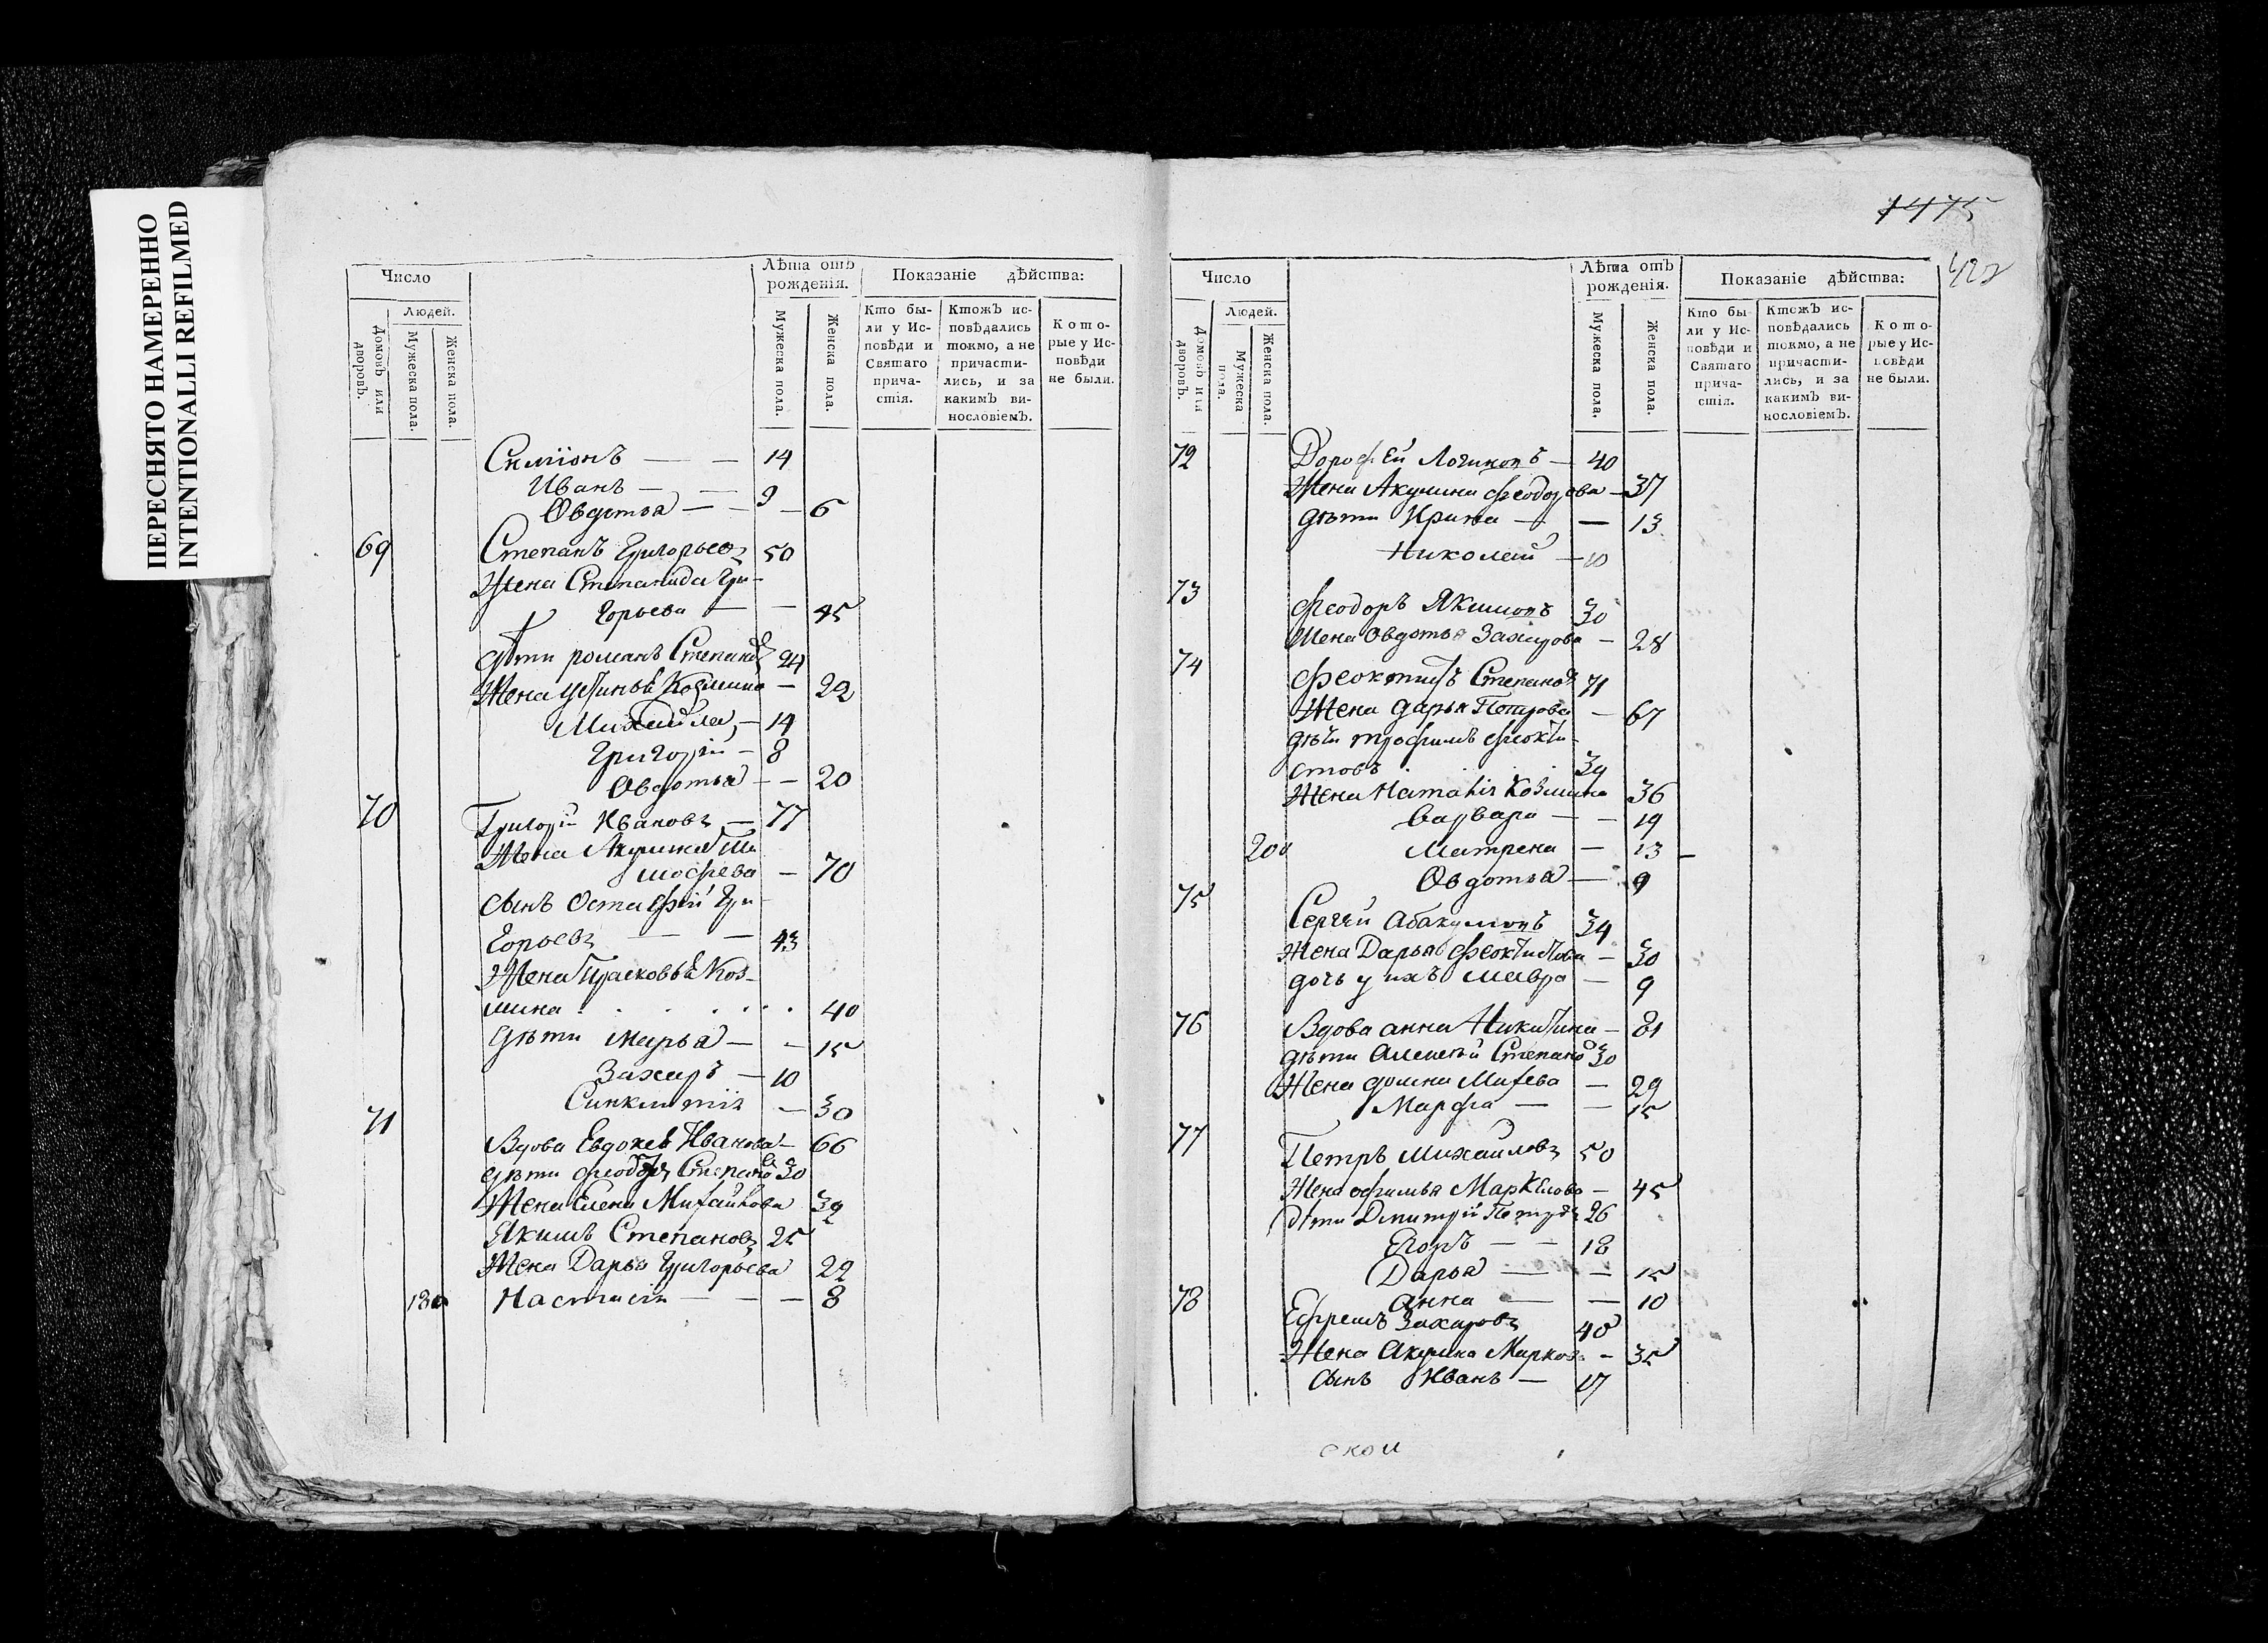 ПЕРЕСНЯТО НАМЕРЕННО
INTENTIONALLI REFILMED
Число
Людей.
Домовъ или дворовъ.
Мужеска пола.
Женска пола.
Лѣта отъ рожденія.
Мужеска пола.
Женска пола.
Показаніе дѣйства:
Кто бы-
ли у Ис-
повѣди и
Святаго
прича-
стія.
Ктожъ ис-
повѣдались
токмо, а не
причасти-
лись, и за
какимъ ви-
нословіемъ.
Кото-
рые у Ис-
повѣди
не были.
Симіонъ — — 14
Иванъ — — 9
Овдотья — — — 6
69 Степанъ Григорьевъ 50
Жена Степанида Гри-
горьева — — 45
дѣти романъ Степановъ 24
Жена Устинья Козмина — 22
Михайла — 14
Григорій — 8
Овдотья — — 20
70 Григорій Ивановъ — 77
Жена Акулина Ти
мофѣева — 70
сынъ Остафій Гри-
горьевъ — — 43
Жена Прасковья Коз-
мина . . . . . . 40
дѣти Марья — — 15
Захаръ — 10
Синклитія — 30
71 Вдова Евдокея Иванова — 66
дѣти Феодоръ Степановъ 30
Жена Елена Михайлова 32
Якимъ Степановъ 25
Жена Дарья Григорьева 22
180 Настасія — — — 8
1475
422
Число
Людей.
Домовъ или дворовъ.
Мужеска пола.
Женска пола.
Лѣта отъ рожденія.
Мужеска пола.
Женска пола.
Показаніе дѣйства:
Кто бы-
ли у Ис-
повѣди и
Святаго
прича-
стія.
Ктожъ ис-
повѣдались
токмо, а не
причасти-
лись, и за
какимъ ви-
нословіемъ.
Кото-
рые у Ис-
повѣди
не были.
72 Дорофей Логиновъ — 40
Жена Акулина Феодорова — 37
дѣти Ирина — — 13
Николай — 10
73 Феодоръ Якимовъ 30
Жена Овдотья Захарова — 28
74 Феоктистъ Степановъ 71
Жена дарья Петрова — 67
дѣти трофимъ феокти-
стовъ . . . . 39
Жена Наталія Козмина 36
Варвара — — 19
200 Матрена — 13
Овдотья — 9
75 Сергѣй Абакумовъ 34
Жена Дарья Феоктистова — 30
дочь у ихъ Мавра — 9
76 Вдова анна Никитина — 81
дѣти Алексѣй Степановъ 30
Жена домна Михеева — 29
Марфа — — 15
77 Петръ Михайловъ 50
Жена офимья Маркелова — 45
дѣти Дмитрій Петровъ 26
Егоръ — — 18
Дарья — — 15
анна — — 10
78 Ефремъ Захаровъ 40
Жена Акулина Маркова — 35
сынъ Иванъ — 17
скои